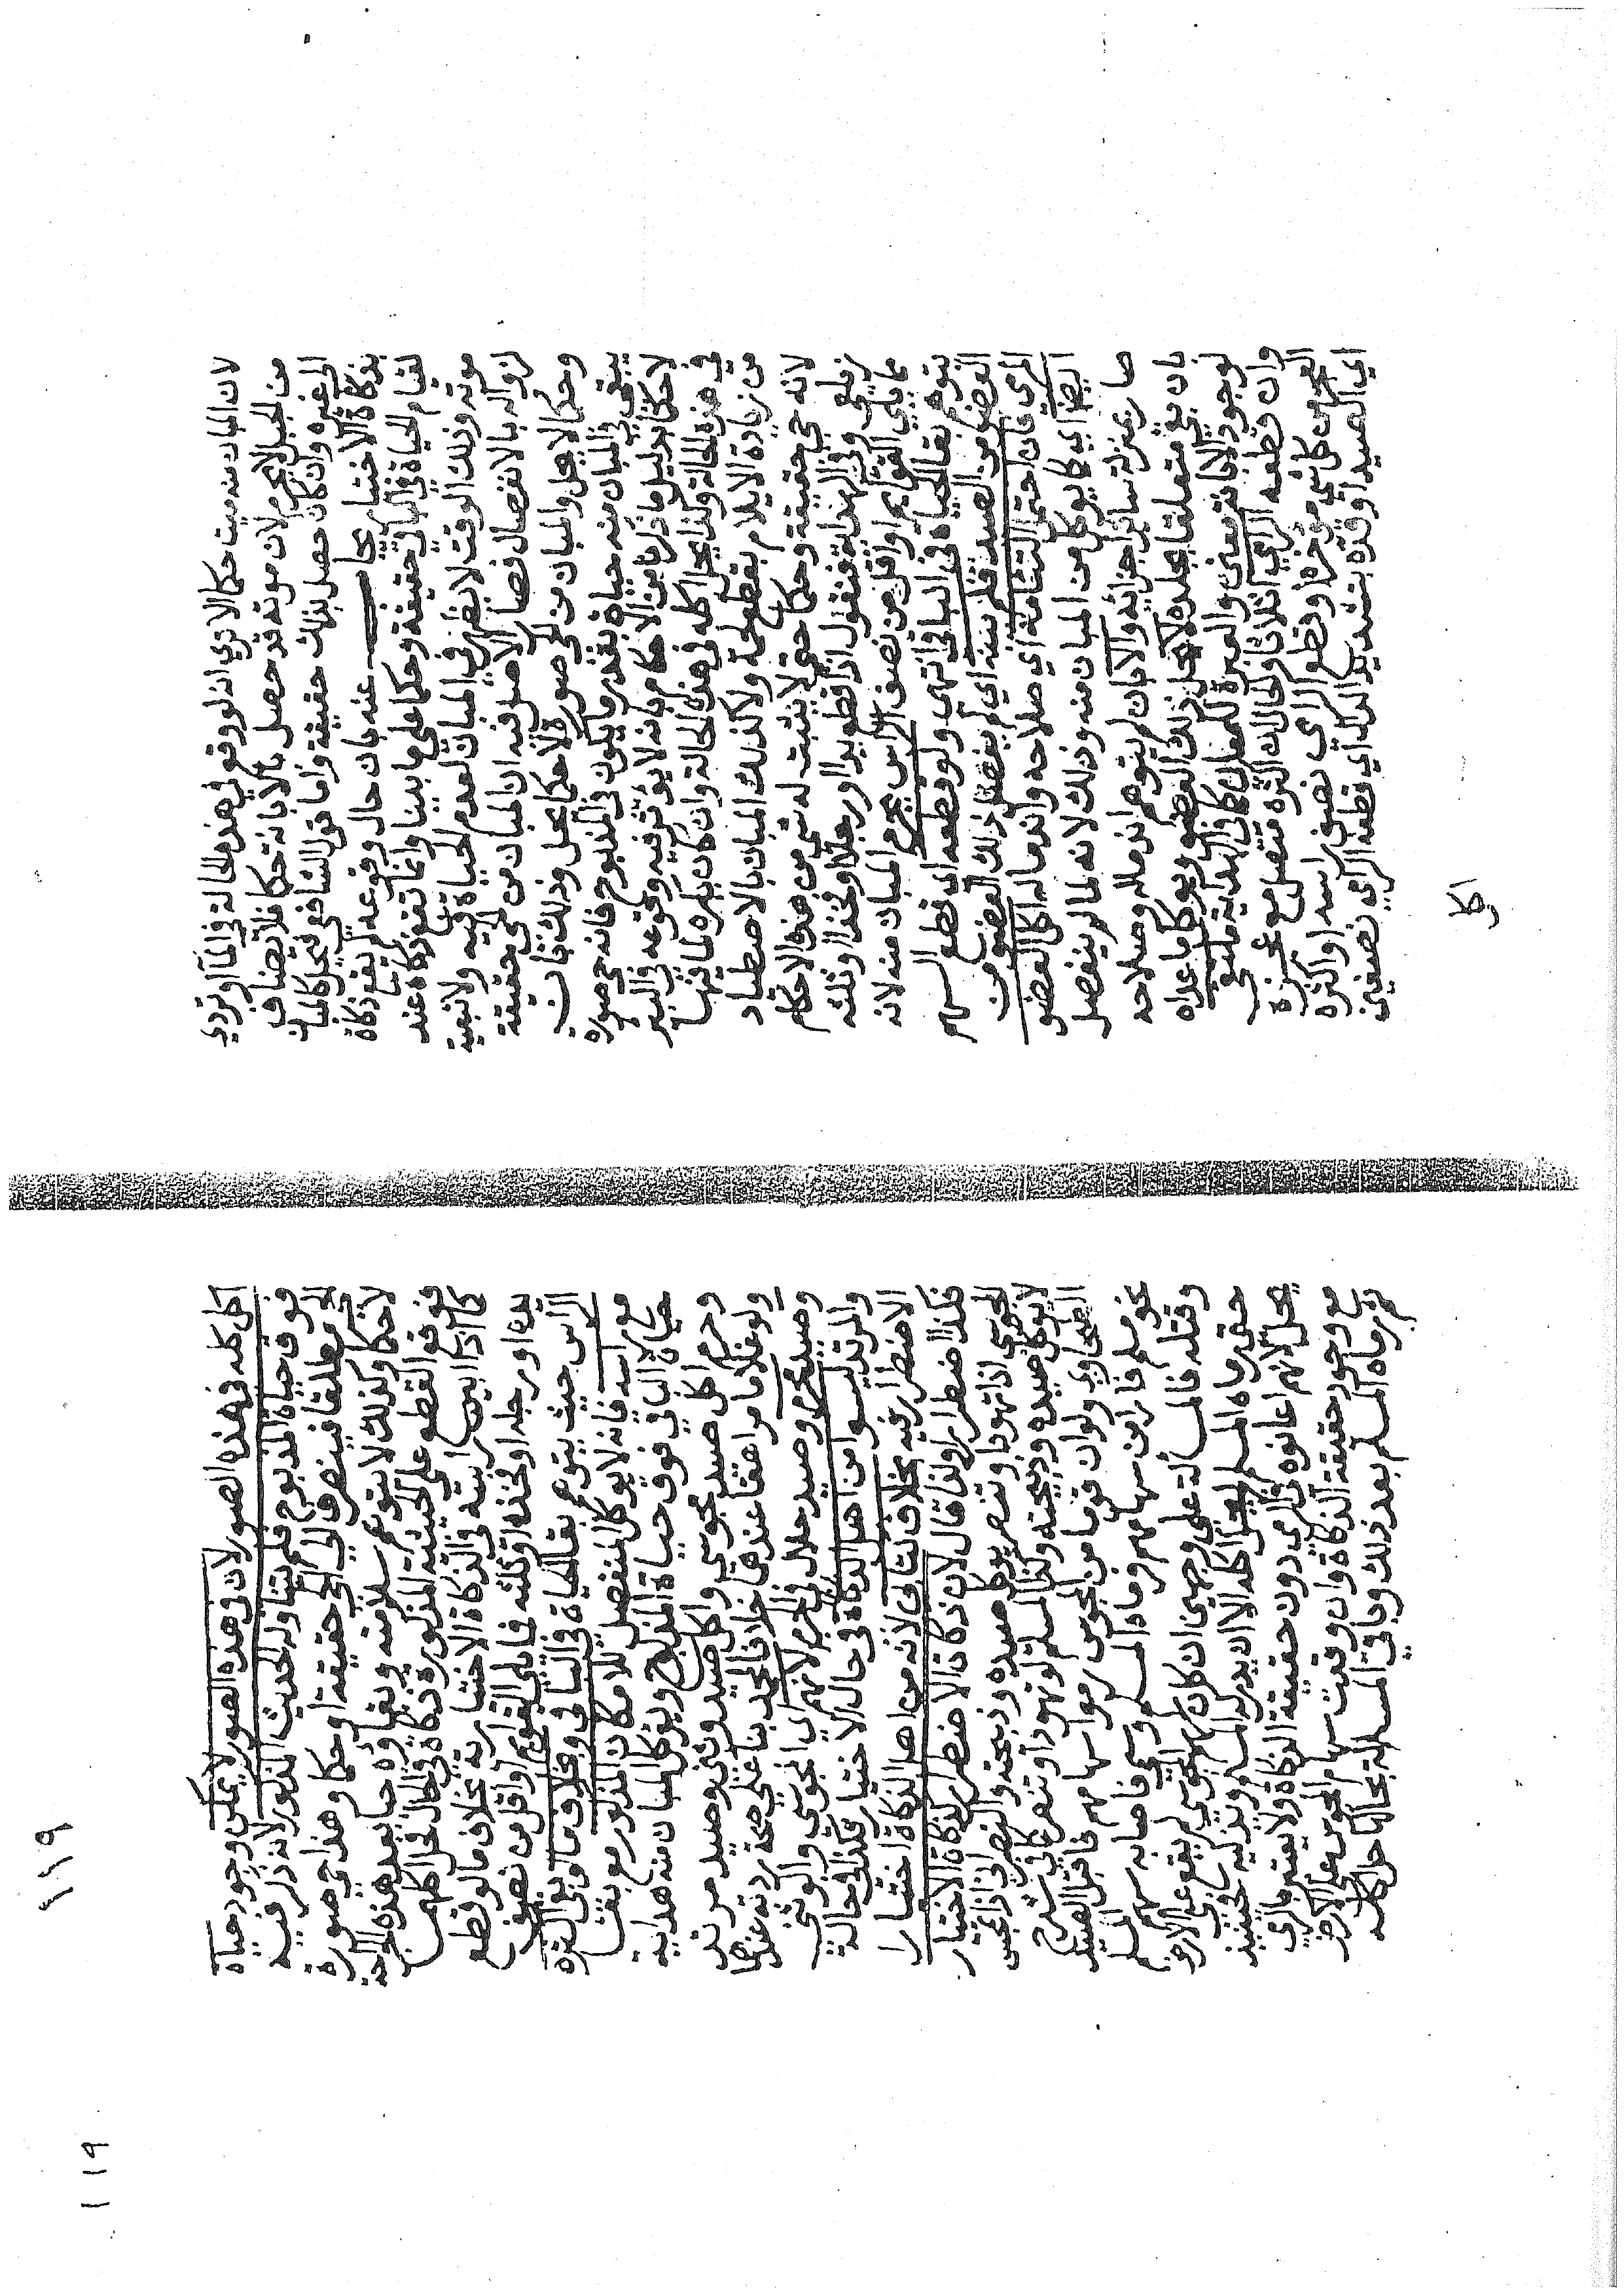 لان المبان منه ميت حكما الا تري انه لو وقع في هذه الحالة في الماء او تردي
من الجبل لا يحرم لان موته قد حصل بالابانة حكما فلا يضاف
الى غيره وان كان حصل بذلك حقيقة واما قول الشافعي فيحل كالمبان
بذكاة الاختيار يجاب عنه بان حال وقوعه لم يقع ذكاة
لقيام الحياة في الباقي حقيقة وحكما على ما بينا وانما تقع ذكاة عند
موته وفي ذلك الوقت لا يظهر في المبان لعدم الحياة فيه ولا تبعية
لزواله بالانفصال فصار الاصل فيه ان المبان من الحي حقيقة
وحكما لا يحل والمبان من الحي صورة لا حكما يحل وذلك بان
يبقى في المبان منه حياة بقدر ما يكون في المذبوح فانه حي صورة
لا حكما بدليل ما ذكرنا من الاحكام بانه لا يؤثر فيه وقوعه في البئر
في هذه الحالة ولذا يحل اكله في هذه الحالة وان كان يكره لما فيها
من زيادة الايلام بقطع لحمه ولا كذلك المبان بالاصطياد
لانه حي حقيقة وحكما حتى لا يثبت له شي من هذه الاحكام
زيلعي وفي الهداية فنقول اذا قطع يدا او رجلا او فخذا او ثلثه
مما يلي القوائم او اقل من نصف الراس يحرم المبان منه لانه
يتوهم بقا الحياة في الباقي انتهى ولو قطعه اي قطع السهم
العضو من الصيد فلم يبنه اي لم يفصل ذلك العضو من
المرمي فان احتمل التئامه اي صلاحه واندماله اكل العضو
ايضا اي كما يوكل من المبان منه وذلك لانه لما لم ينفصل
صار بمنزلة سائر اجزائه والا بان لم يتوهم اندماله وصلاحه
بان بقي متعلقا بجلده لا يحل ذلك العضو ويوكل ما عداه
لوجود الابانة معنى والعبرة للمعاني كما في الهداية ملتقى
وان قطعه الرامي اثلاثا والحال ان اكثره متصل مع عجزه
العجز من كل شي مؤخره او قطع الرامي نصف راسه او اكثره
اي الصيد او قده بتشديد الدال اي قطعه الرامي نصفين
اكل
١١٩
119
اكل كله في هذه الصور لان في هذه الصور لا يمكن وجود حياة
فوق حياة المذبوح فلم يتناوله الحديث المذكور لانه ذكر فيه
الحي مطلقا فينصرف الى الحي حقيقة وحكما وهذا حي صورة
لا حكما وكذلك لا يتوهم سلامته وبقاؤه حيا بعد هذه الجراحة
فوقع القطع على الجثة المذكورة ذكاة في الحال فحل اكله
كما اذا ابين راسه في الذكاة الاختيارية بخلاف ما لو قطع
يده او رجله او فخذه او ثلثه مما يلي القوائم او اقل من نصف
الراس حيث يتوهم بقا الحياة في الباقي وبخلاف ما لو بقي اكثره
مع راسه فانه لا يوكل المنفصل للامكان المذكور مع بقا
حياة الباقي فوق حياة المذبوح ويوكل المبان منه هداية
وحرم اكل صيد مجوسي واكل صيد وثني وصيد مرتد
ولو غلاما مراهقا عندهما خلافا لمحمد بناء على صحة ردته عندهما
وصيد محرم وصيد حلال في الحرم لانهم اي المجوسي والوثني
والمرتد ليسوا من اهل الذكاة في حال الاختيار فكذا في حالة
الاضطرار فيه بخلاف كتابي لانه من اهل الذكاة اختيارا
فكذا اضطرارا ولذا قال لان ذكاة الاضطرار كذكاة الاختيار
المجوسي اذا تهود او تنصر يوكل صيده وذبيحته والنصراني اذا تمجس
لا يوكل صيده وذبيحته وكذا المسلم لو تهود او تنصر كما في شرح
الطحاوي ولو ان قوما من المجوس رموا سهامهم فاقبل الصيد
نحو مسلم فارا من سهامهم فرماه المسلم وسمى فاصابه سهم المسلم
وقتله فالمسألة على وجهين ان كان سهم المجوسي لم يقع على الارض
حتى رماه المسلم لم يحل اكله الا ان يدركه المسلم ويذكيه فحينئذ
يحل لانهم اعانوه في الرمي دون حقيقة الذكاة ولا يعتبر بالرمي
مع وجود حقيقة الذكاة وان وقعت سهام المجوس على الارض
ثم رماه المسلم بعد ذلك وباقي المسالة بحالها حل اكله